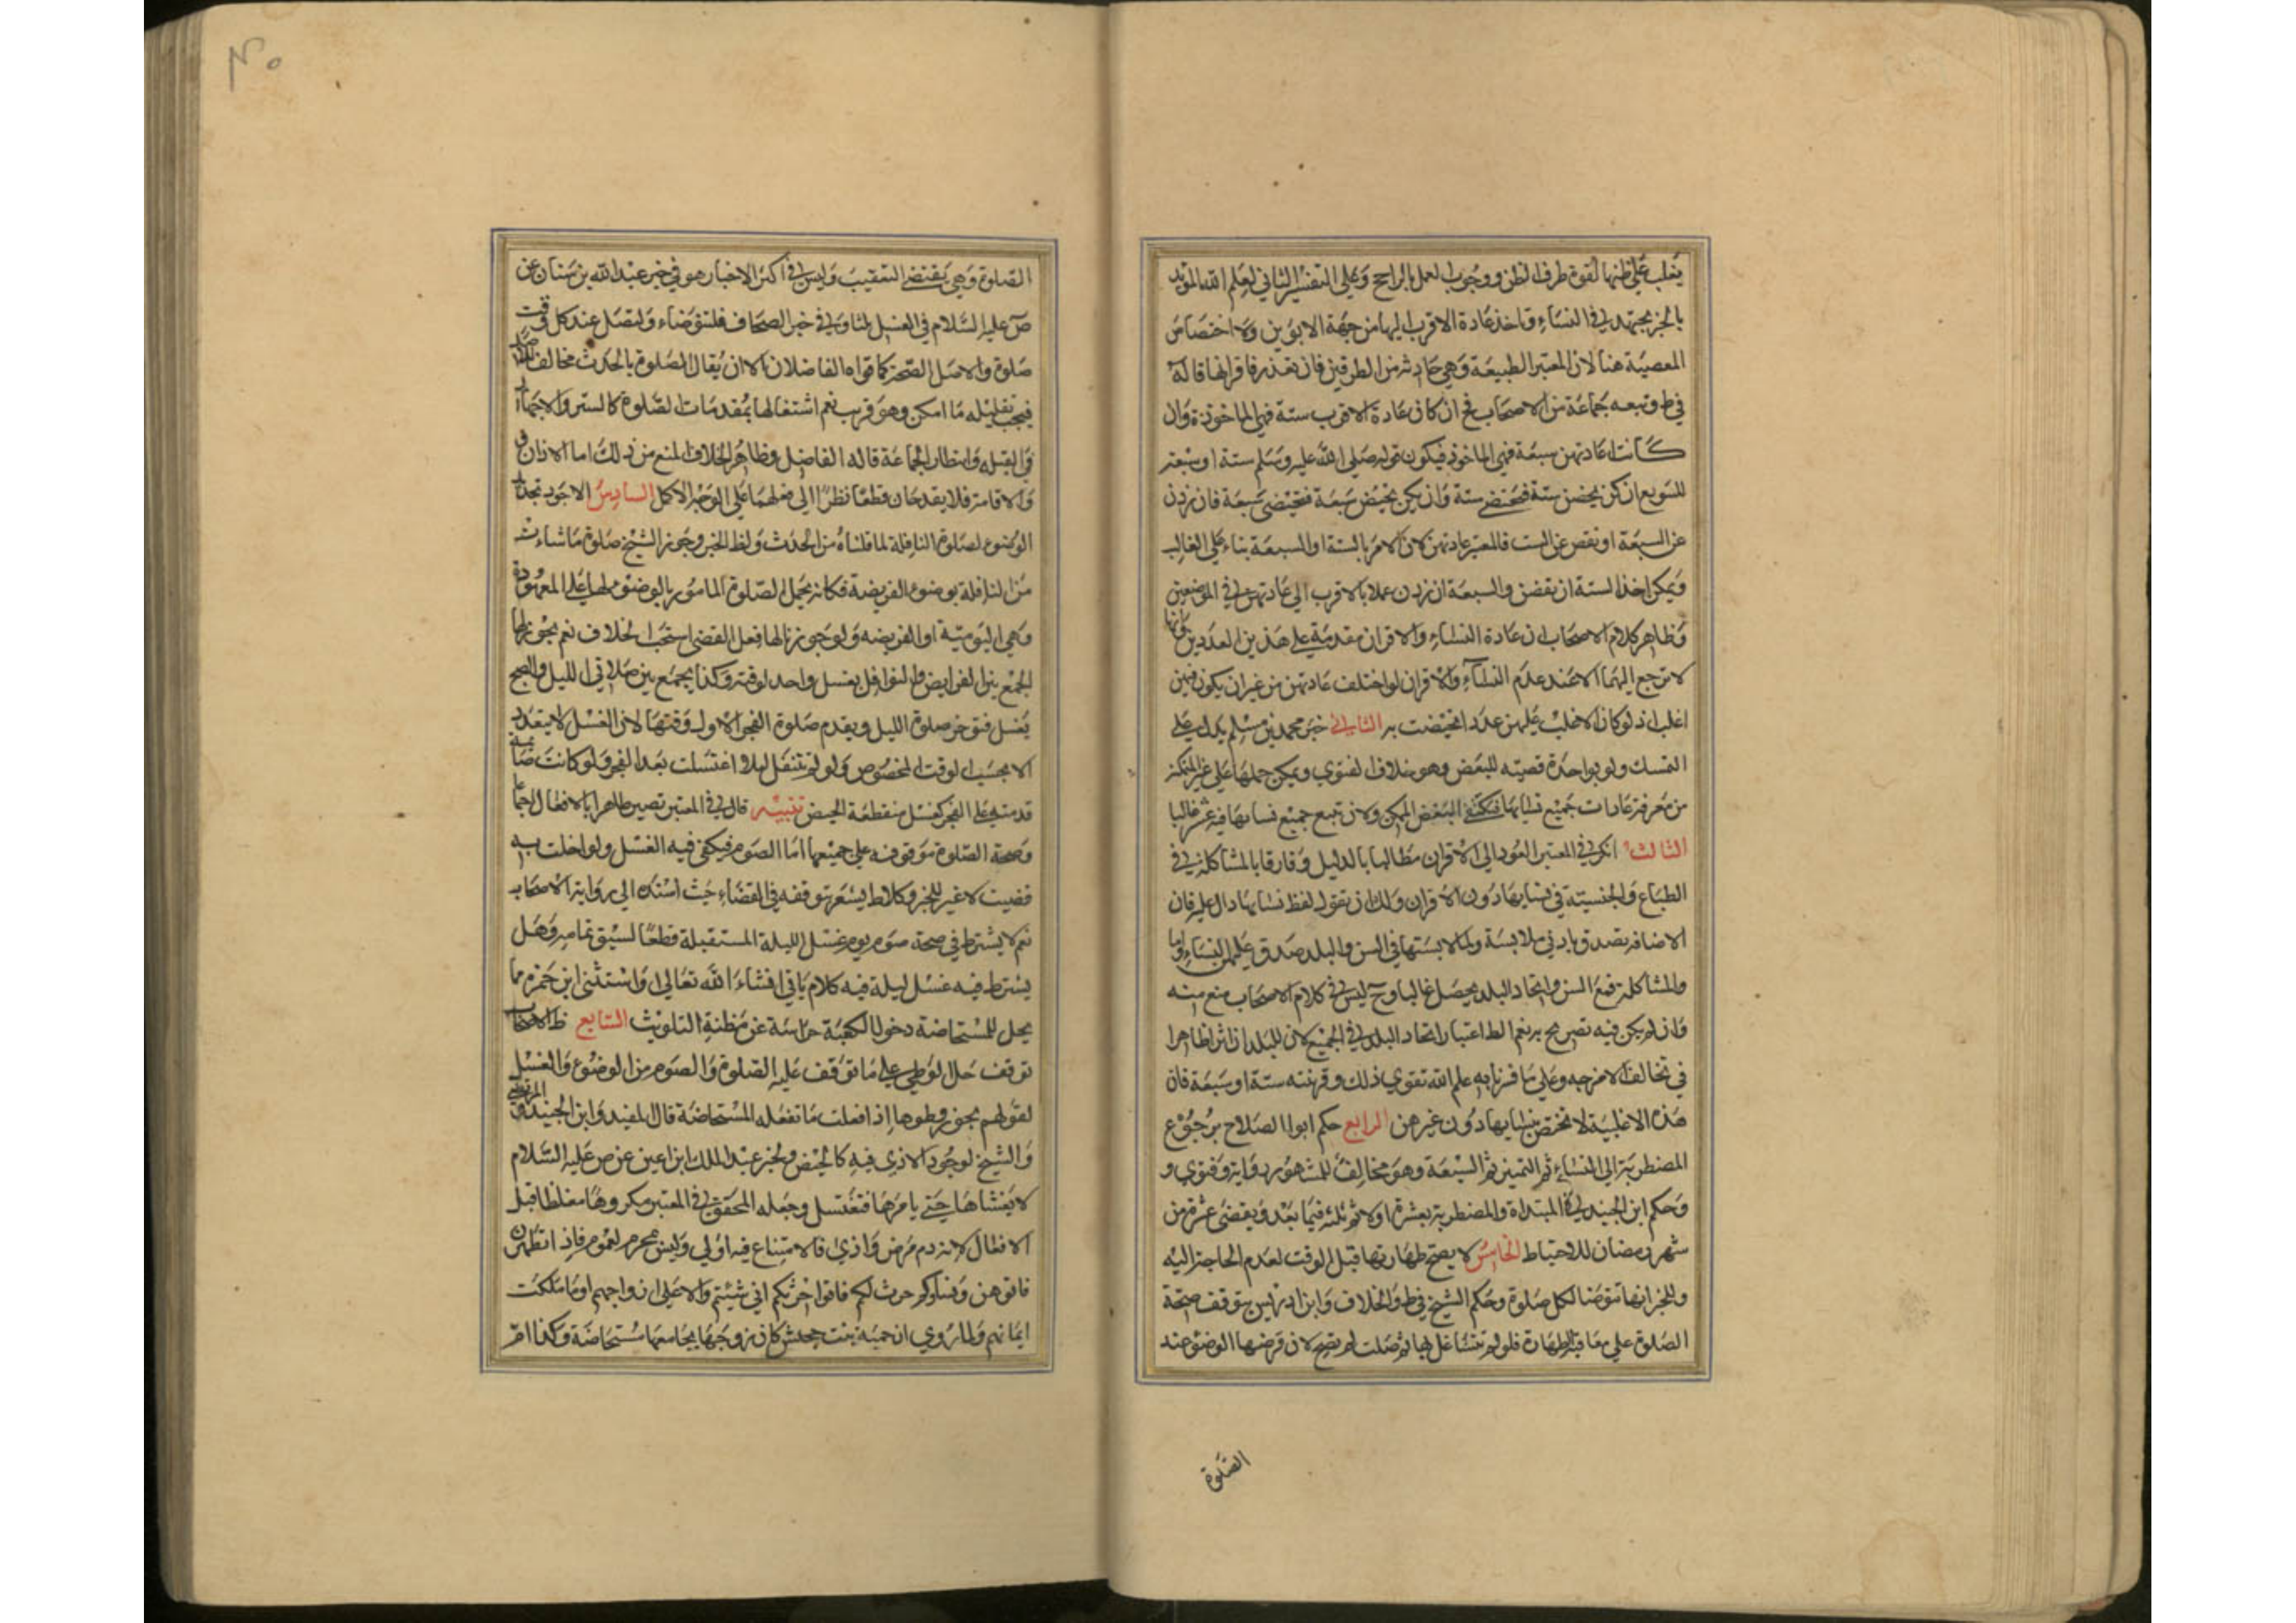 يغلب على ظنها لقوة طرف الظن ووجوب العمل بالراجح وعلى التفسير الثاني لعلم الله المؤيد
بالخبر يجتهد في النساء وتاخذ عادة الاقرب اليها من جهة الابوين ولا اختصاص
المعصبة هنا لان المعتبر الطبيعة وهي حادثة من الطرفين فان تعذر فاقرانها قاله
في ط وتبعه جماعة من الاصحاب فح ان كان عادة الاقرب ستة فهي الماخوذة وان
كانت عادتهن سبعة فهي الماخوذ فيكون قوله صلى الله عليه وسلم ستة او سبعة
للتنويع ان كن يحضن ستة فتحيضي ستة وان يكن يحيض سبعة فتحيضي سبعة فان زدن
عن السبعة او نقص عن الست فالمعتبر عادتهن لان الامر بالستة او السبعة بناء على الغالب
ويمكن اخذ الستة ان نقصن والسبعة ان زدن عملا بالاقرب الى عادتهن في الموضعين
وظاهر كلام الاصحاب ان عادة النساء والاقران مقدمة على هذين العددين وانها
لا ترجع اليهما الا عند عدم النساء والاقران لو اختلف عادتهن من غير ان يكون فيهن
اغلب اذ لو كان الاغلب عليهن عددا تحيضت به الثاني خبر محمد بن مسلم يدل على
التمسك ولو بواحدة قضيته للبعض وهو خلاف الفتوى ويمكن حملها على غير المتمكنة
من معرفة عادات جميع نسايها فيكتفى البعض الممكن ولان تتبع جميع نسايها فيه عسر غالبا
الثالث انكر في المعتبر العود الى الاقران مطالبا بالدليل وفارقا بالمشاكلة في
الطباع والجنسية في نسايها دون الاقران ولك ان تقول لفظ نسايها دال عليه فان
الاضافة تصدق بادنى ملابسة ولما لابستها في السن والبلد صدق عليهن النساء واما
والمشاكلة فمع السن واتحاد البلد يحصل غالبا وح ليس في كلام الاصحاب منع منه
وان لم يكن فيه تصريح به نعم الظ اعتبار اتحاد البلد في الجميع لان للبلدان اثرا ظاهرا
في تخالف الامزجه وعلى ما فسرنا به علم الله تقوي ذلك وقرينته ستة او سبعة فان
هذه الاغلبية لا تختص بنسايها دون غيرهن الرابع حكم ابوا الصلاح برجوع
المضطربة الى النساء ثم التميز ثم السبعة وهو مخالف للمشهور رواية وفتوي و
وحكم ابن الجنيد في المبتداة والمضطربة بعشرة اولا ثم ثلثه فيما بعد ويقضي عشرة من
شهر رمضان للاحتياط الخامس لا يصح طهارتها قبل الوقت لعدم الحاجة اليه
وللخبر انها تتوضا لكل صلوة وحكم الشيخ في ط والخلاف وابن ادريس بتوقف صحة
الصلوة على معاقبة الطهارة فلو لم تتشاغل بها ثم صلت لم يصح لان فرضها الوضوء عند
الصلوة
٤٠
الصلوة وهي يقتضي التعقيب وليس في اكثر الاخبار هو في خبر عبد الله بن سنان عن
ص عليه السلام في الغسل لنا وفي خبر الصحاف فلتتوضاء ولتصل عند كل وقت
صلوة والاصل الصحة كما قواه الفاضلان الا ان يقال الصلوة بالحدث مخالف للاصل
فيجب تقليله ما امكن وهو قريب نعم اشتغالها بمقدمات الصلوة كالستر والاجتهاد
في القبله وانتظار الجماعة قاله الفاضل وظاهر الخلاف المنع من ذلك اما الاذان
والاقامة فلا يقدحان قطعا نظرا الى فعلهما على الوجه الاكمل السادس الاجود تجديد
الوضوء لصلوة النافلة لما قلناه من الحدث ولفظ الخبر وجوز الشيخ صلوة ما شاءت
من النافلة بوضوء الفريضة فكانه يحمل الصلوة المامور بالوضوء لها على المعهودة
وهي اليومية او الفريضه ولو جوزنا لها فعل القضي استحب الخلاف نعم يجوز لها
الجمع بين الفرايض والنوافل بغسل واحد لوقته وكذا يجمع بين صلاتي الليل والصبح
بغسل فتوخر صلوة الليل ويقدم صلوة الفجر الاول وقتها لان الغسل لا يتعدد
الا بحسب الوقت المخصوص ولو لم تتنفل ليلا اغتسلت بعد الفجر ولو كانت صائمة
قدمته على الفجر كغسل منقطعة الحيض تنبيه قال في المعتبر تصير طاهرا بالافعال اجماعا
وصحة الصلوة موقوفه على جميعها اما الصوم فيكفي فيه الغسل ولو اخلت به
قضيت لا غير للخبر وكلام ط يشعر بتوقفه في القضاء حيث اسنده الي رواية الاصحاب
نعم لا يشترط في صحة صوم يوم غسل الليلة المستقبلة قطعا لسبق تمامه وهل
يشترط فيه غسل ليلة فيه كلام ياتي انشاء الله تعالى واستثنى ابن حمزه مما
يحل للمستحاضة دخول الكعبة حراسة عن مظنة التلويث السابع ظ الاصحاب
توقف حل الوطي على ما توقف عليه الصلوة والصوم من الوضوء والغسل
لقولهم يجوز وطوها اذا فعلت ما تفعله المستحاضة قال المفيد وابن الجنيد والمرتضى
والشيخ لوجود الاذي فيه كالحيض ولخبر عبد الملك ابن اعين عن ص عليه السلام
لا يغشاها حتى يامرها فتغتسل وجعله المحقق في المعتبر مكروها مغلظا قبل
الافعال لانه دم مرض واذي فالامتناع فيه اولي وليس محرم لعموم فاذا تطهرن
فاتوهن ونساؤكم حرث لكم فاتوا حرثكم اني شيئتم والا على ازواجهم او ما ملكت
ايمانهم ولما روي ان حمنة بنت جحش كان زوجها يجامعها مستحاضة وكذا ام